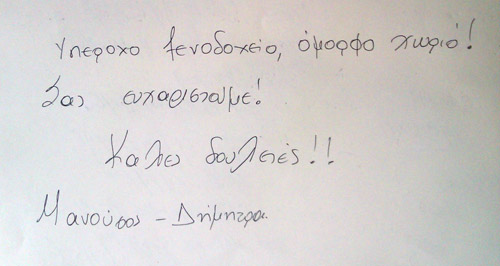 Υπεροχο ξενοδοχειο, όμορφο χωριό!
Σας ευχαριστουμε!
Καλες δουλειές!!
Μανούσος - Δήμητρα.